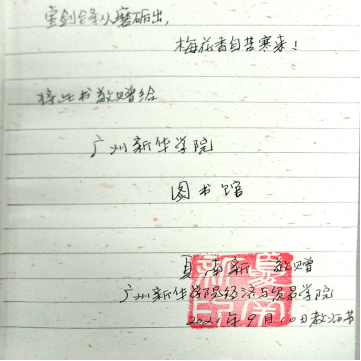 宝剑锋从磨砺出，
梅花香自苦寒来！
将此书敬赠给
广州新华学院
图书馆
夏南新 敬赠
广州新华学院经济与贸易学院
2021年9月10日教师节